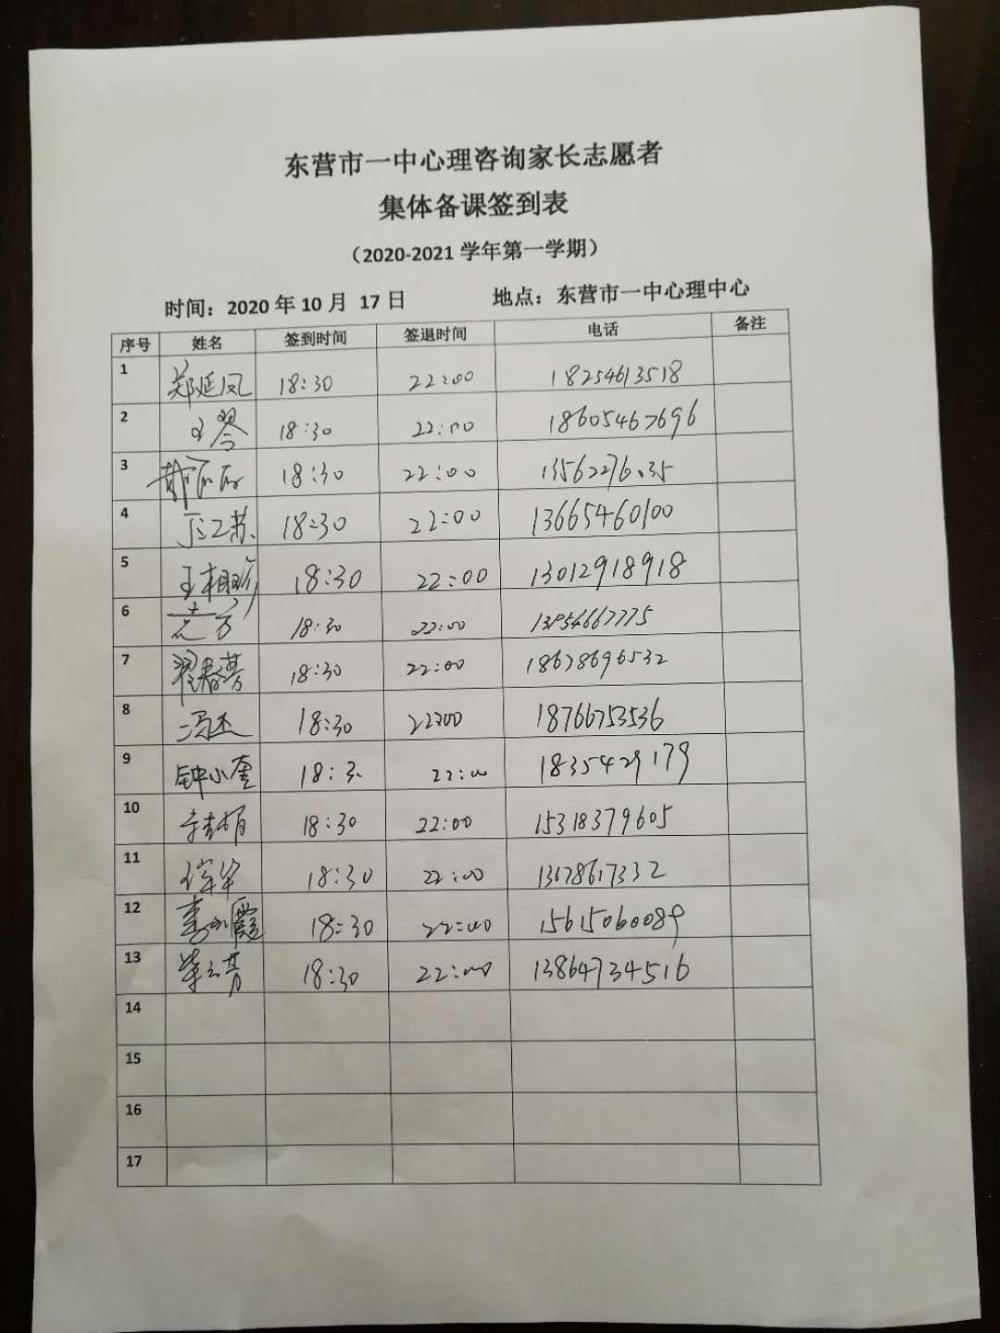 东营市一中心理咨询家长志愿者
集体备课签到表
（2020-2021 学年第一学期）
时间：2020 年 10 月 17 日 地点：东营市一中心理中心
序号 姓名 签到时间 签退时间 电话 备注
1 郑延凤 18:30 22:00 18254613518
2 王琴 18:30 22:00 18605467696
3 18:30 22:00
4 丁江苏 18:30 22:00 13665460100
5 18:30 22:00 13012918918
6 18:30 22:00
7 翟春芳 18:30 22:00 18678696532
8 冯杰 18:30 22:00 18766753536
9 钟小奎 18:30 22:00 18354429179
10 18:30 22:00 15318379605
11 18:30 22:00
12 18:30 22:00 15615060089
13 18:30 22:00 13864734516
14
15
16
17